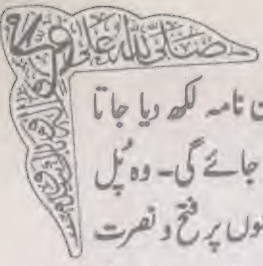 صلی اللہ علی
ن نامہ لکھ دیا جاتا
جائے گی۔ وہ پُل
وں پر فتح و نصرت